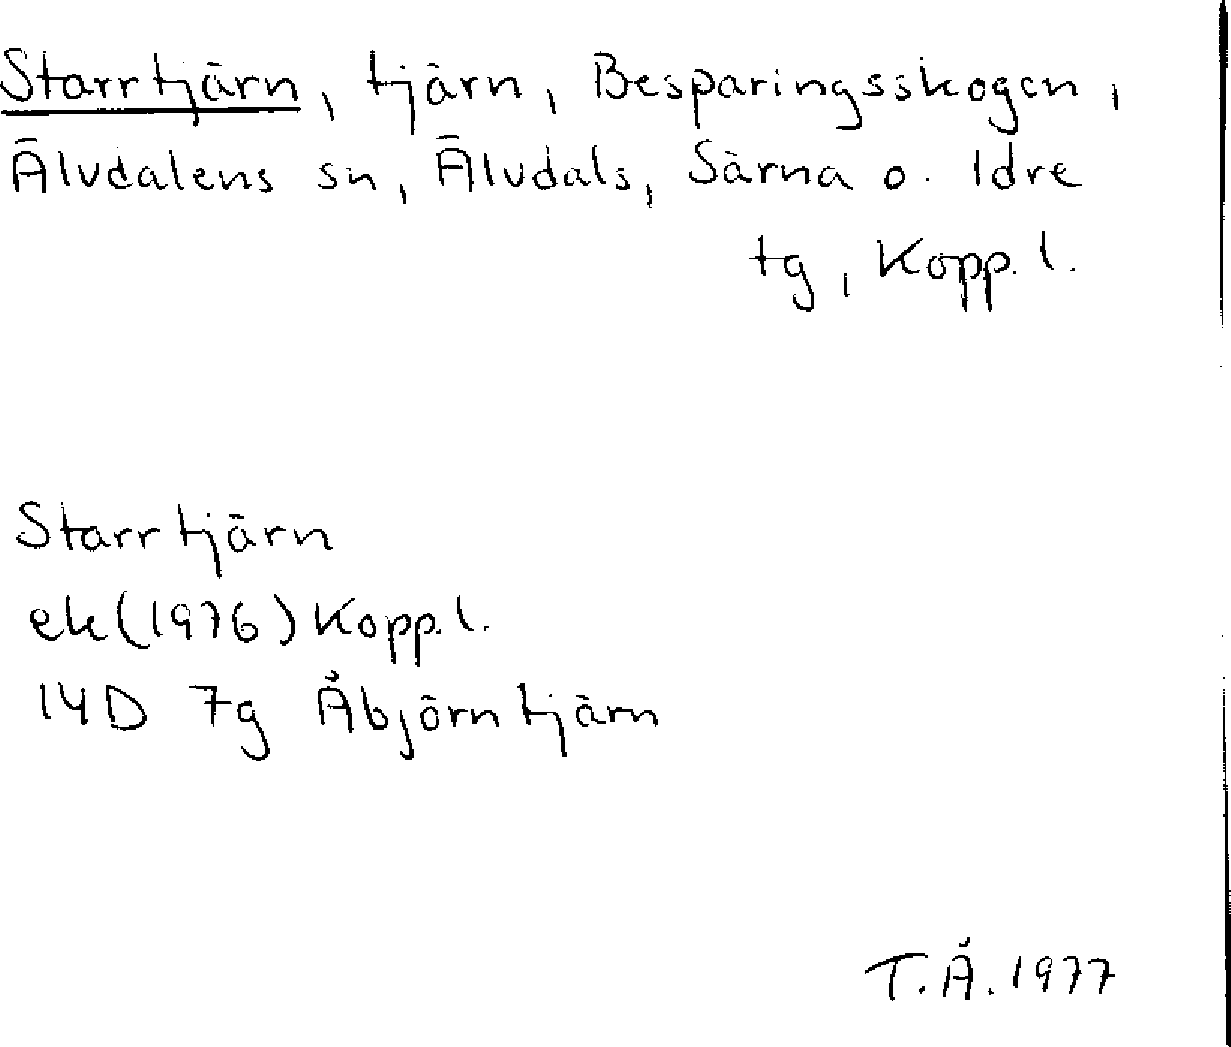 Starrtjärn, tjärn, Besparingsskogen,
Älvdalens sn, Älvdals, Särna o. Idre
tg, Kopp. l.
Starrtjärn
ek(1976) Kopp. l.
14D 7g Åbjörntjärn
T.Å. 1977